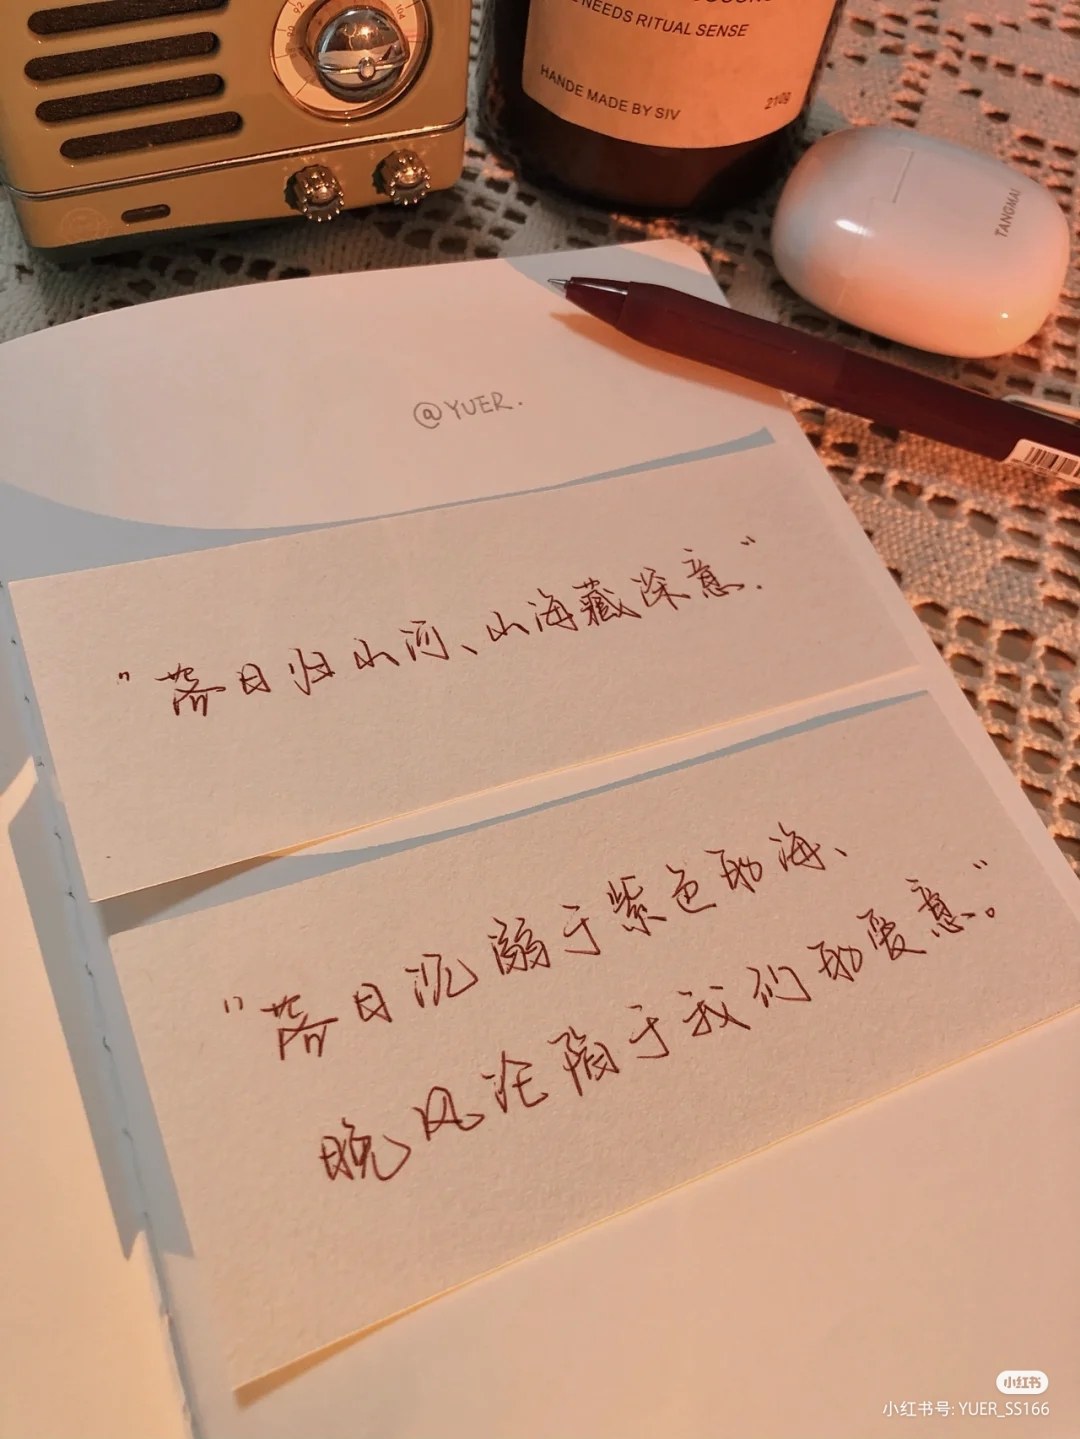 92
104
NEEDS RITUAL SENSE
HANDE MADE BY SIV
210g
TANGMAI
@YUER.
"落日归山河、山海藏深意".
"落日沉溺于紫色的海、
晚风沦陷于我们的爱意。"
小红书
小红书号: YUER_SS166